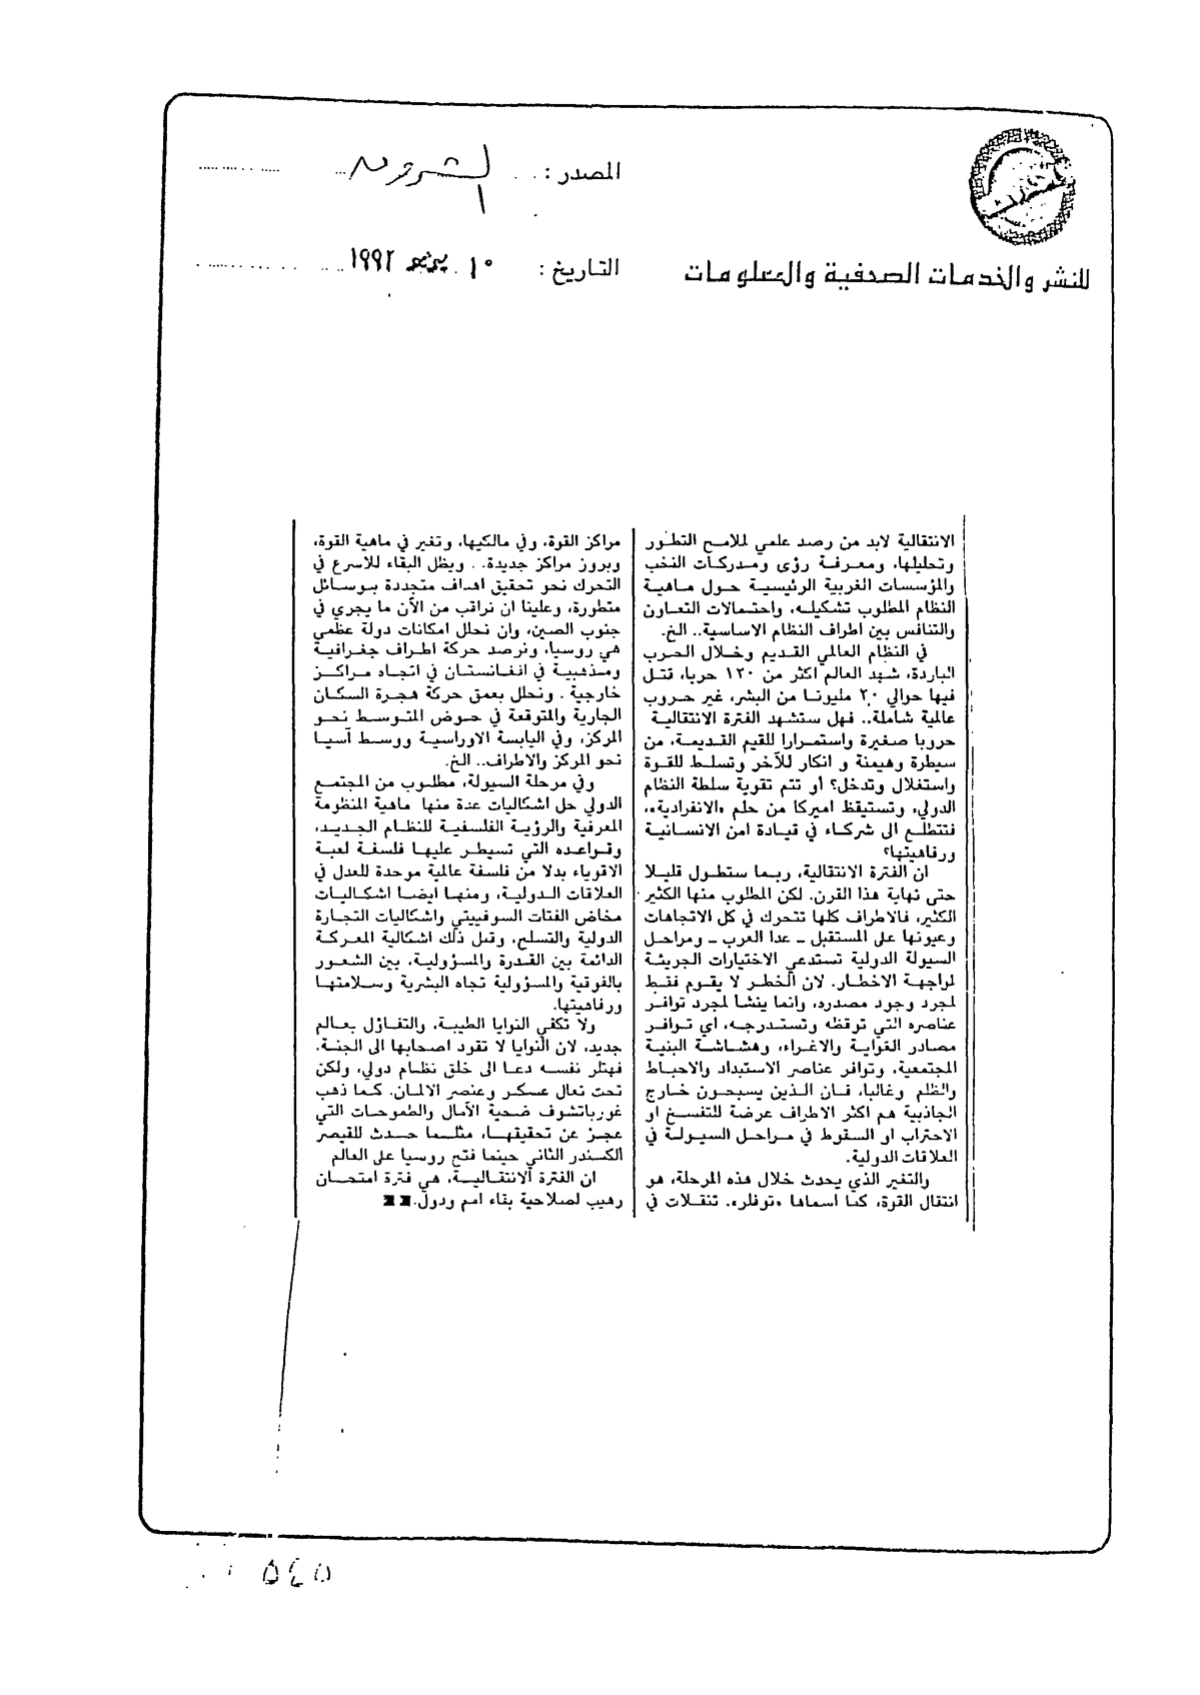 المصدر : الشروق
للنشر والخدمات الصحفية والمعلومات
التاريخ : ١٠ يونيو ١٩٩٢
الانتقالية لابد من رصد علمي لملامح التطور
وتحليلها، ومعرفة رؤى ومدركات النخب
والمؤسسات الغربية الرئيسية حول ماهية
النظام المطلوب تشكيله، واحتمالات التعاون
والتنافس بين اطراف النظام الاساسية.. الخ.
في النظام العالمي القديم وخلال الحرب
الباردة، شهد العالم اكثر من ١٢٠ حربا، قتل
فيها حوالي ٢٠ مليونا من البشر، غير حروب
عالمية شاملة.. فهل ستشهد الفترة الانتقالية
حروبا صغيرة واستمرارا للقيم القديمة، من
سيطرة وهيمنة و انكار للآخر وتسلط للقوة
واستغلال وتدخل؟ أو تتم تقوية سلطة النظام
الدولي، وتستيقظ اميركا من حلم «الانفرادية»،
فتتطلع الى شركاء في قيادة امن الانسانية
ورفاهيتها؟
ان الفترة الانتقالية، ربما ستطول قليلا
حتى نهاية هذا القرن. لكن المطلوب منها الكثير
الكثير، فالاطراف كلها تتحرك في كل الاتجاهات
وعيونها على المستقبل ـ عدا العرب ـ ومراحل
السيولة الدولية تستدعي الاختيارات الجريئة
لمراجهة الاخطار. لان الخطر لا يقوم فقط
لمجرد وجود مصدره، وانما ينشا لمجرد توافر
عناصره التي توقظه وتستدرجه، اي توافر
مصادر الغواية والاغراء، وهشاشة البنية
المجتمعية، وتوافر عناصر الاستبداد والاحباط
والظلم وغالبا، فان الذين يسبحون خارج
الجاذبية هم اكثر الاطراف عرضة للتفسخ او
الاحتراب او السقوط في مراحل السيولة في
العلاقات الدولية.
والتغير الذي يحدث خلال هذه المرحلة، هو
انتقال القوة، كما اسماها «توفلر». تنقلات في
مراكز القوة، وفي مالكيها، وتغير في ماهية القوة،
وبروز مراكز جديدة.. ويظل البقاء للاسرع في
التحرك نحو تحقيق اهداف متجددة بوسائل
متطورة، وعلينا ان نراقب من الآن ما يجري في
جنوب الصين، وان نحلل امكانات دولة عظمى
هي روسيا، ونرصد حركة اطراف جغرافية
ومذهبية في افغانستان في اتجاه مراكز
خارجية . ونحلل بعمق حركة هجرة السكان
الجارية والمتوقعة في حوض المتوسط نحو
المركز، وفي اليابسة الاوراسية ووسط آسيا
نحو المركز والاطراف.. الخ.
وفي مرحلة السيولة، مطلوب من المجتمع
الدولي حل اشكاليات عدة منها ماهية المنظومة
المعرفية والرؤية الفلسفية للنظام الجديد،
وقواعده التي تسيطر عليها فلسفة لعبة
الاقوياء بدلا من فلسفة عالمية موحدة للعدل في
العلاقات الدولية، ومنها ايضا اشكاليات
مخاض الفتات السوفييتي واشكاليات التجارة
الدولية والتسلح، وقبل ذلك اشكالية المعركة
الدائمة بين القدرة والمسؤولية، بين الشعور
بالفوقية والمسؤولية تجاه البشرية وسلامتها
ورفاهيتها.
ولا تكفي النوايا الطيبة، والتفاؤل بعالم
جديد، لان النوايا لا تقود اصحابها الى الجنة.
فهتلر نفسه دعا الى خلق نظام دولي، ولكن
تحت نعال عسكر وعنصر الالمان. كما ذهب
غورباتشوف ضحية الآمال والطموحات التي
عجز عن تحقيقها، مثلما حدث للقيصر
الكسندر الثاني حينما فتح روسيا على العالم
ان الفترة الانتقالية، هي فترة امتحان
رهيب لصلاحية بقاء امم ودول.
٥٤٥